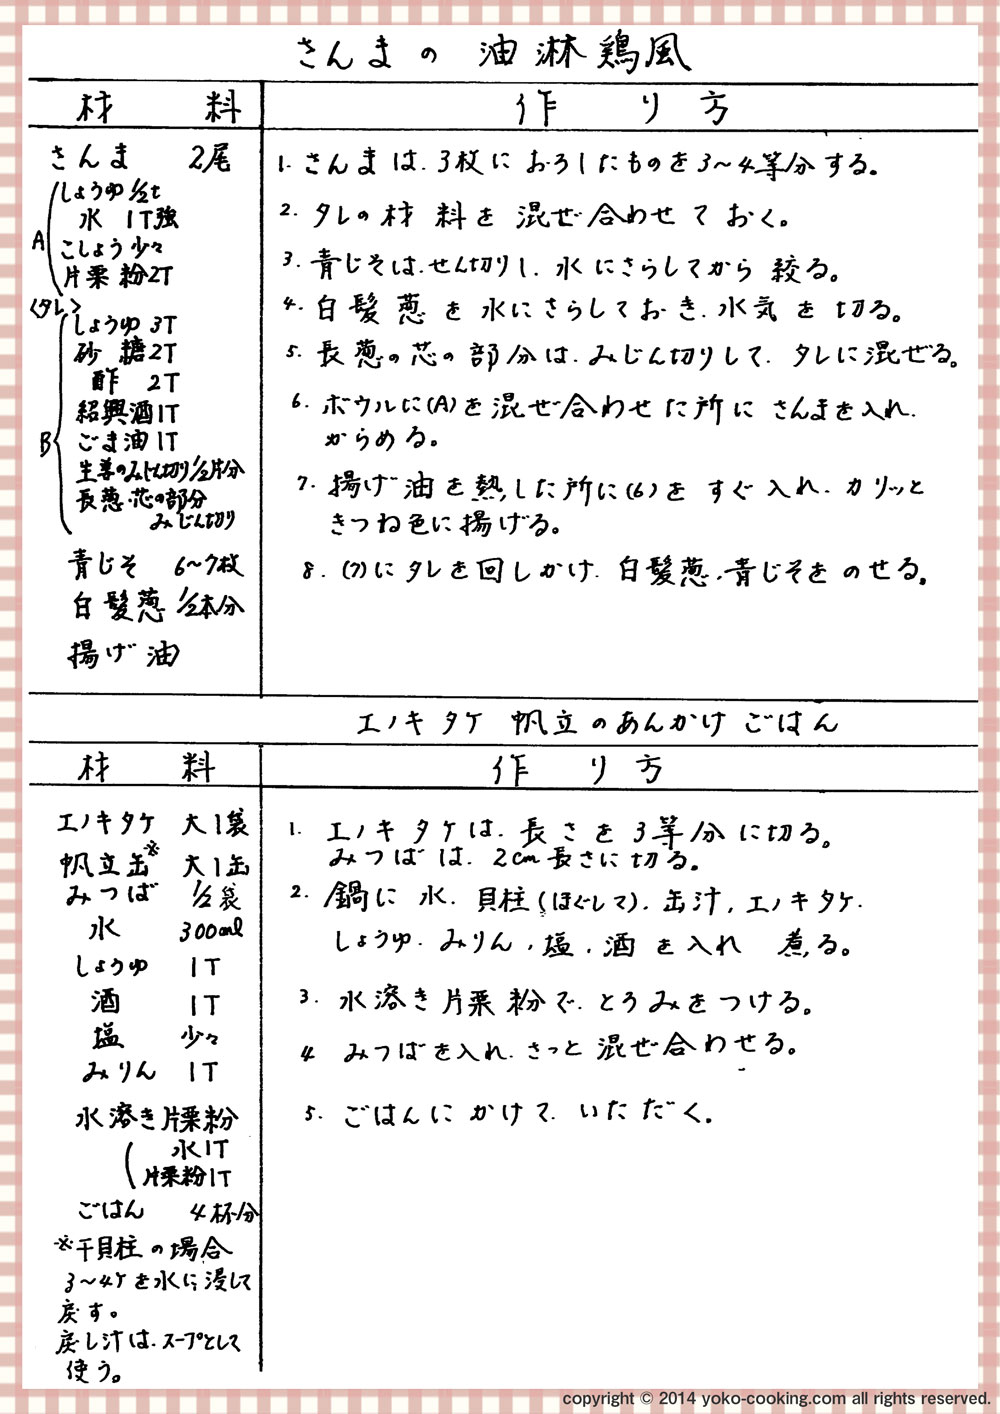 さんまの 油淋鶏風
材 料
作 り 方
さんま 2尾
A
しょうゆ ½t
水 1T強
こしょう 少々
片栗粉 2T
<タレ>
B
しょうゆ 3T
砂糖 2T
酢 2T
紹興酒 1T
ごま油 1T
生姜のみじん切り ½片分
長葱・芯の部分
みじん切り
青じそ 6〜7枚
白髪葱 ½本分
揚げ油
1. さんまは、3枚におろしたものを3〜4等分する。
2. タレの材料を混ぜ合わせておく。
3. 青じそは、せん切りし、水にさらしてから絞る。
4. 白髪葱を水にさらしておき、水気を切る。
5. 長葱の芯の部分は、みじん切りして、タレに混ぜる。
6. ボウルに(A)を混ぜ合わせた所にさんまを入れ、
からめる。
7. 揚げ油を熱した所に(6)をすぐ入れ、カリッと
きつね色に揚げる。
8. (7)にタレを回しかけ、白髪葱、青じそをのせる。
エノキタケ 帆立のあんかけごはん
材 料
作 り 方
エノキタケ 大1袋
帆立缶※ 大1缶
みつば ½袋
水 300ml
しょうゆ 1T
酒 1T
塩 少々
みりん 1T
水溶き片栗粉
水1T
片栗粉1T
ごはん 4杯分
※干貝柱の場合
3〜4ケを水に浸して
戻す。
戻し汁は、スープとして
使う。
1. エノキタケは、長さを3等分に切る。
みつばは、2cm長さに切る。
2. 鍋に水、貝柱(ほぐして)、缶汁、エノキタケ、
しょうゆ、みりん、塩、酒を入れ 煮る。
3. 水溶き片栗粉で、とろみをつける。
4 みつばを入れ、さっと混ぜ合わせる。
5. ごはんにかけて、いただく。
copyright © 2014 yoko-cooking.com all rights reserved.